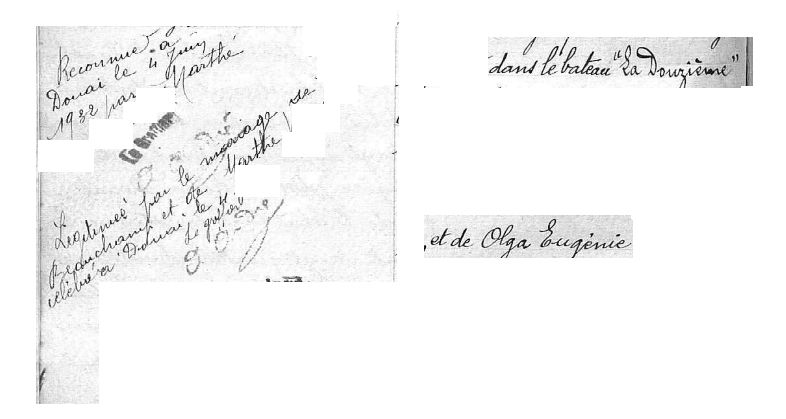 Reconnue à
Douai le 4 Juin
1932 par Marthé
Le Greffier
Légitimée par le mariage de
Beauchamp et de Marthe,
célébré à Douai le 4
Le greffier
dans le bateau "La Douzième"
, et de Olga Eugénie